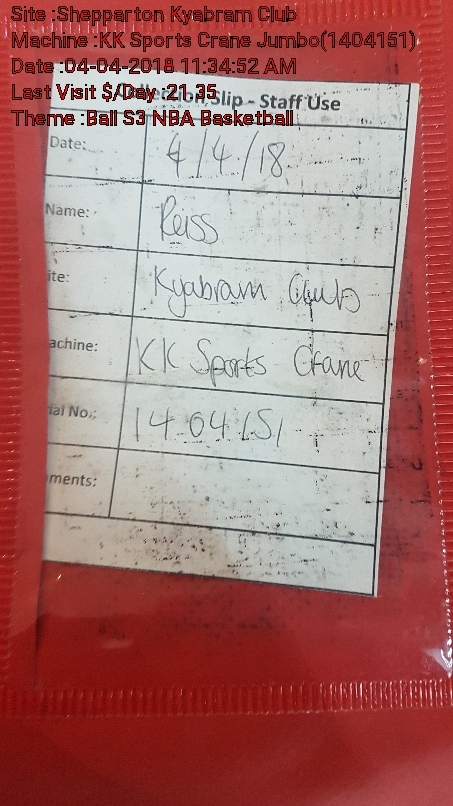 Site :Shepparton Kyabram Club
Machine :KK Sports Crane Jumbo(1404151)
Date :04-04-2018 11:34:52 AM
Last Visit $/Day :21.35
Slip - Staff Use
Theme :Ball S3 NBA Basketball
Date: 4/4/18
Name: Reiss
ite: Kyabram Club
achine: KK Sports Crane
ial No.: 1404151
ments: